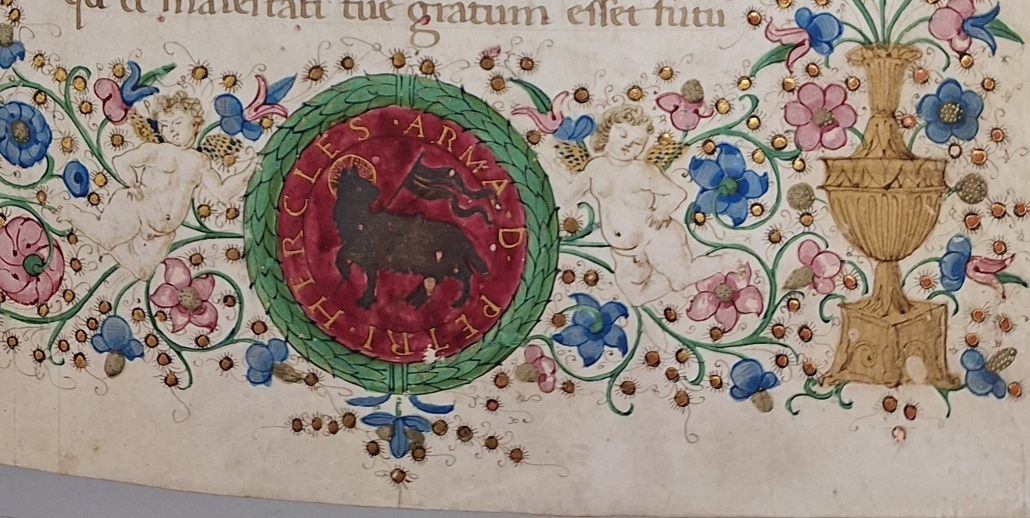 qd et maiestati tue gratum esset futu
· ARMA · D · PETRI · HERCLES